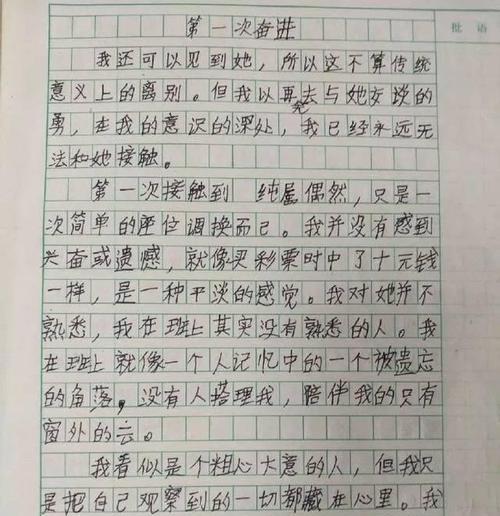 第一次奋进
批语
我还可以见到她，所以这不算传统
意义上的离别。但我以再去与她交谈的
勇，在我的意识的深处，我已经永远无
法和她接触。
第一次接触到 纯属偶然，只是一
次简单的座位调换而已。我并没有感到
兴奋或遗憾，就像买彩票时中了十元钱
一样，是一种平淡的感觉。我对她并不
熟悉，我在班上其实没有熟悉的人。我
在班上就像一个人记忆中的一个被遗忘
的角落，没有人搭理我，陪伴我的只有
窗外的云。
我看似是个粗心大意的人，但我只
是把自己观察到的一切都藏在心里。我